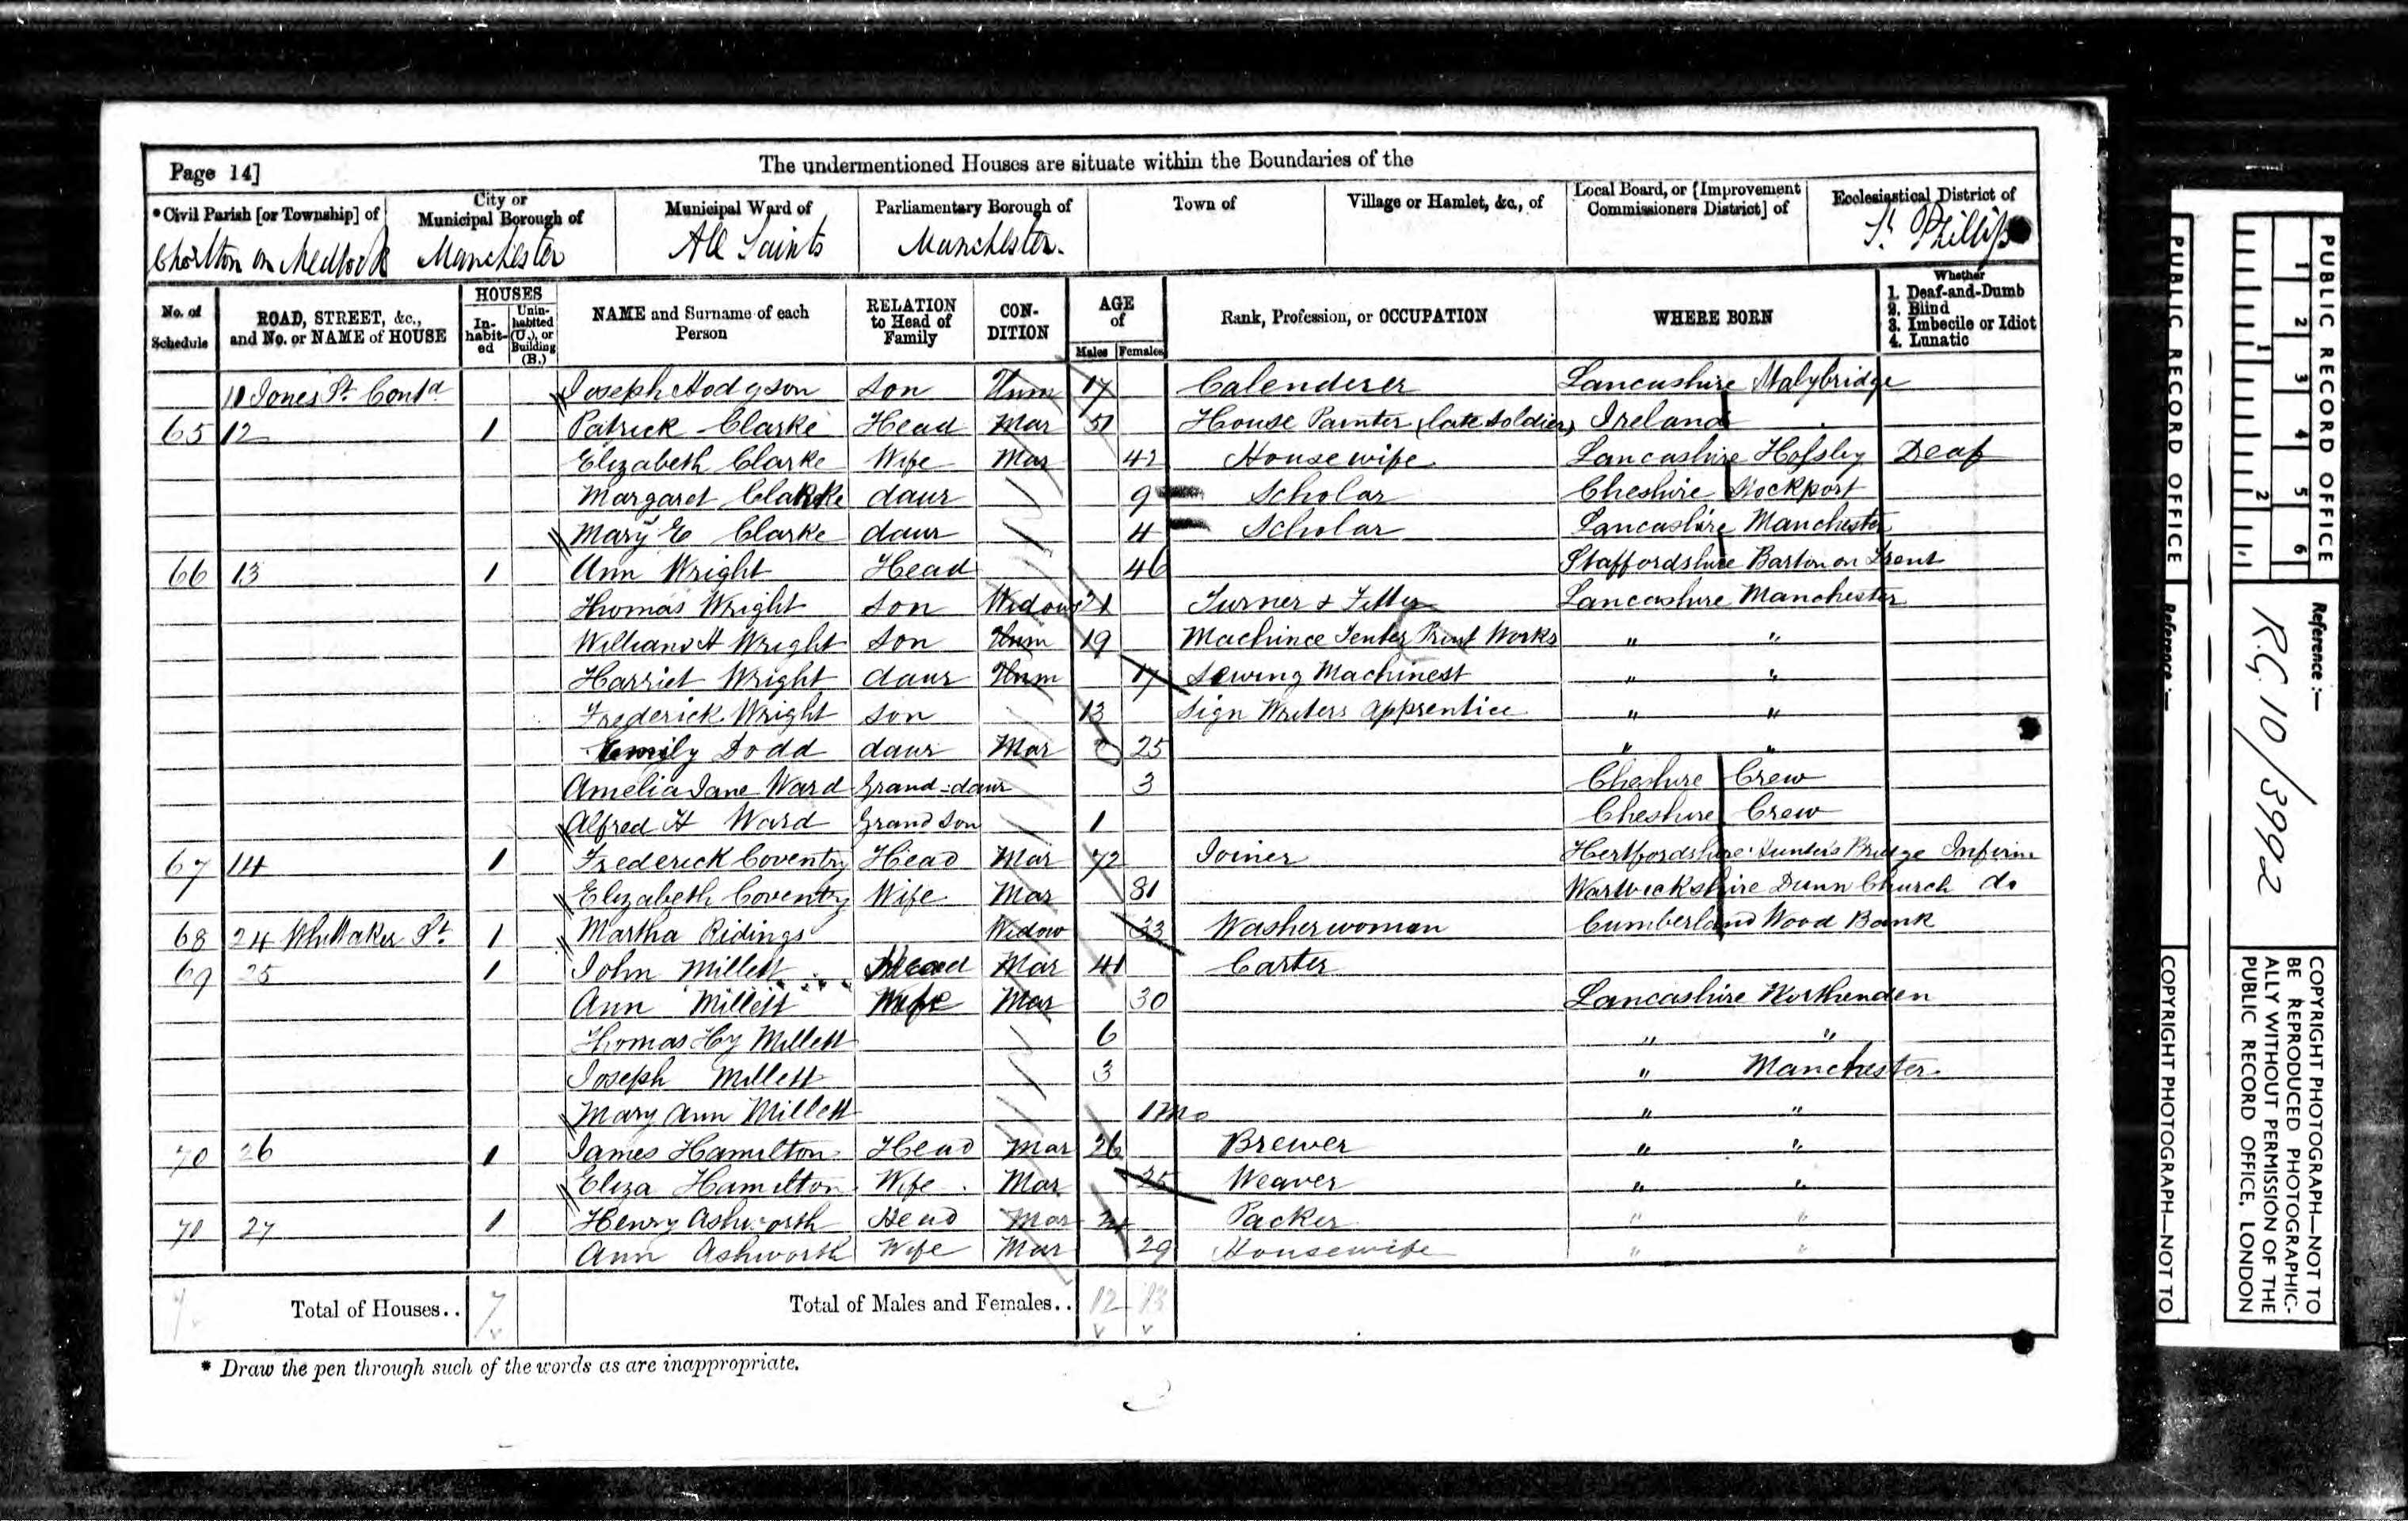 Page 14]
The undermentioned Houses are situate within the Boundaries of the
*Civil Parish [or Township] of
City or Municipal Borough of
Municipal Ward of
Parliamentary Borough of
Town of
Village or Hamlet, &c., of
Local Board, or [Improvement Commissioners District] of
Ecclesiastical District of
Chorlton on Medlock Manchester All Saints Manchester. St Phillips
No. of Schedule
ROAD, STREET, &c., and No. or NAME of HOUSE
HOUSES
In-habit-ed
Unin-habited (U.), or Building (B.)
NAME and Surname of each Person
RELATION to Head of Family
CON-DITION
AGE of
Males Females
Rank, Profession, or OCCUPATION
WHERE BORN
Whether
1. Deaf-and-Dumb
2. Blind
3. Imbecile or Idiot
4. Lunatic
11 Jones St Contd Joseph Hodgson Son Unm 17 Calenderer Lancashire Stalybridge
65 12 1 Patrick Clarke Head Mar 51 House Painter (late Soldier) Ireland
Elizabeth Clarke Wife Mar 42 Housewife Lancashire Deaf
Margaret Clarke daur 9 Scholar Cheshire Stockport
Mary E Clarke daur 4 Scholar Lancashire Manchester
66 13 1 Ann Wright Head 46 Staffordshire Barton on Trent
Thomas Wright Son Widow 21 Turner & Fitter Lancashire Manchester
William H Wright Son Unm 19 Machince Tenter Print Works " "
Harriet Wright daur Unm 17 Sewing Machinest " "
Frederick Wright Son 13 Sign Writers apprentice " "
Emily Dodd daur Mar 25 " "
Amelia Jane Ward Grand=daur 3 Cheshire Crew
Alfred H Ward Grand Son 1 Cheshire Crew
67 14 1 Frederick Coventry Head Mar 72 Joiner Hertfordshire Hunters Bridge Infirm
Elizabeth Coventry Wife Mar 81 Warwickshire Dunn Church do
68 24 Whittaker St. 1 Martha Ridings Widow 33 Washerwoman Cumberland Wood Bank
69 25 1 John Millett Head Mar 41 Carter
Ann Millett Wife Mar 30 Lancashire Northenden
Thomas Hy Millett 6 " "
Joseph Millett 3 " Manchester
Mary Ann Millett 1 Mo " "
70 26 1 James Hamilton Head Mar 26 Brewer " "
Eliza Hamilton Wife Mar 25 Weaver " "
71 27 1 Henry Ashworth Head Mar Packer " "
Ann Ashworth Wife Mar 29 Housewife " "
Total of Houses.. 7
Total of Males and Females.. 12 13
* Draw the pen through such of the words as are inappropriate.
PUBLIC RECORD OFFICE
Reference :—
COPYRIGHT PHOTOGRAPH—NOT TO
PUBLIC RECORD OFFICE
1 2 3 4 5 6
1 2
Reference :—
R.G. 10/3992
COPYRIGHT PHOTOGRAPH—NOT TO
BE REPRODUCED PHOTOGRAPHIC-
ALLY WITHOUT PERMISSION OF THE
PUBLIC RECORD OFFICE, LONDON